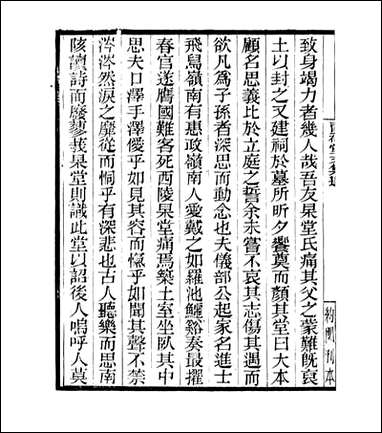 約園刊本
致身竭力者幾人哉吾友杲堂氏痛其父之蒙難既哀
土以封之又建祠於墓所昕夕饗奠而顏其堂曰大本
顧名思義比於立庭之誓余未嘗不哀其志傷其遇而
欲凡爲子孫者深思而動念也夫儀部公起家名進士
飛舃嶺南有惠政嶺南人愛戴之如羅池鱷谿奏最擢
春官遂膺國難客死西陵杲堂痛焉築土室坐臥其中
思夫口澤手澤僾乎如見其容而愾乎如聞其聲不禁
涔涔然淚之靡從而恫乎有深悲也古人聽樂而思南
陔讀詩而廢蓼莪杲堂則識此堂以詔後人嗚呼人莫